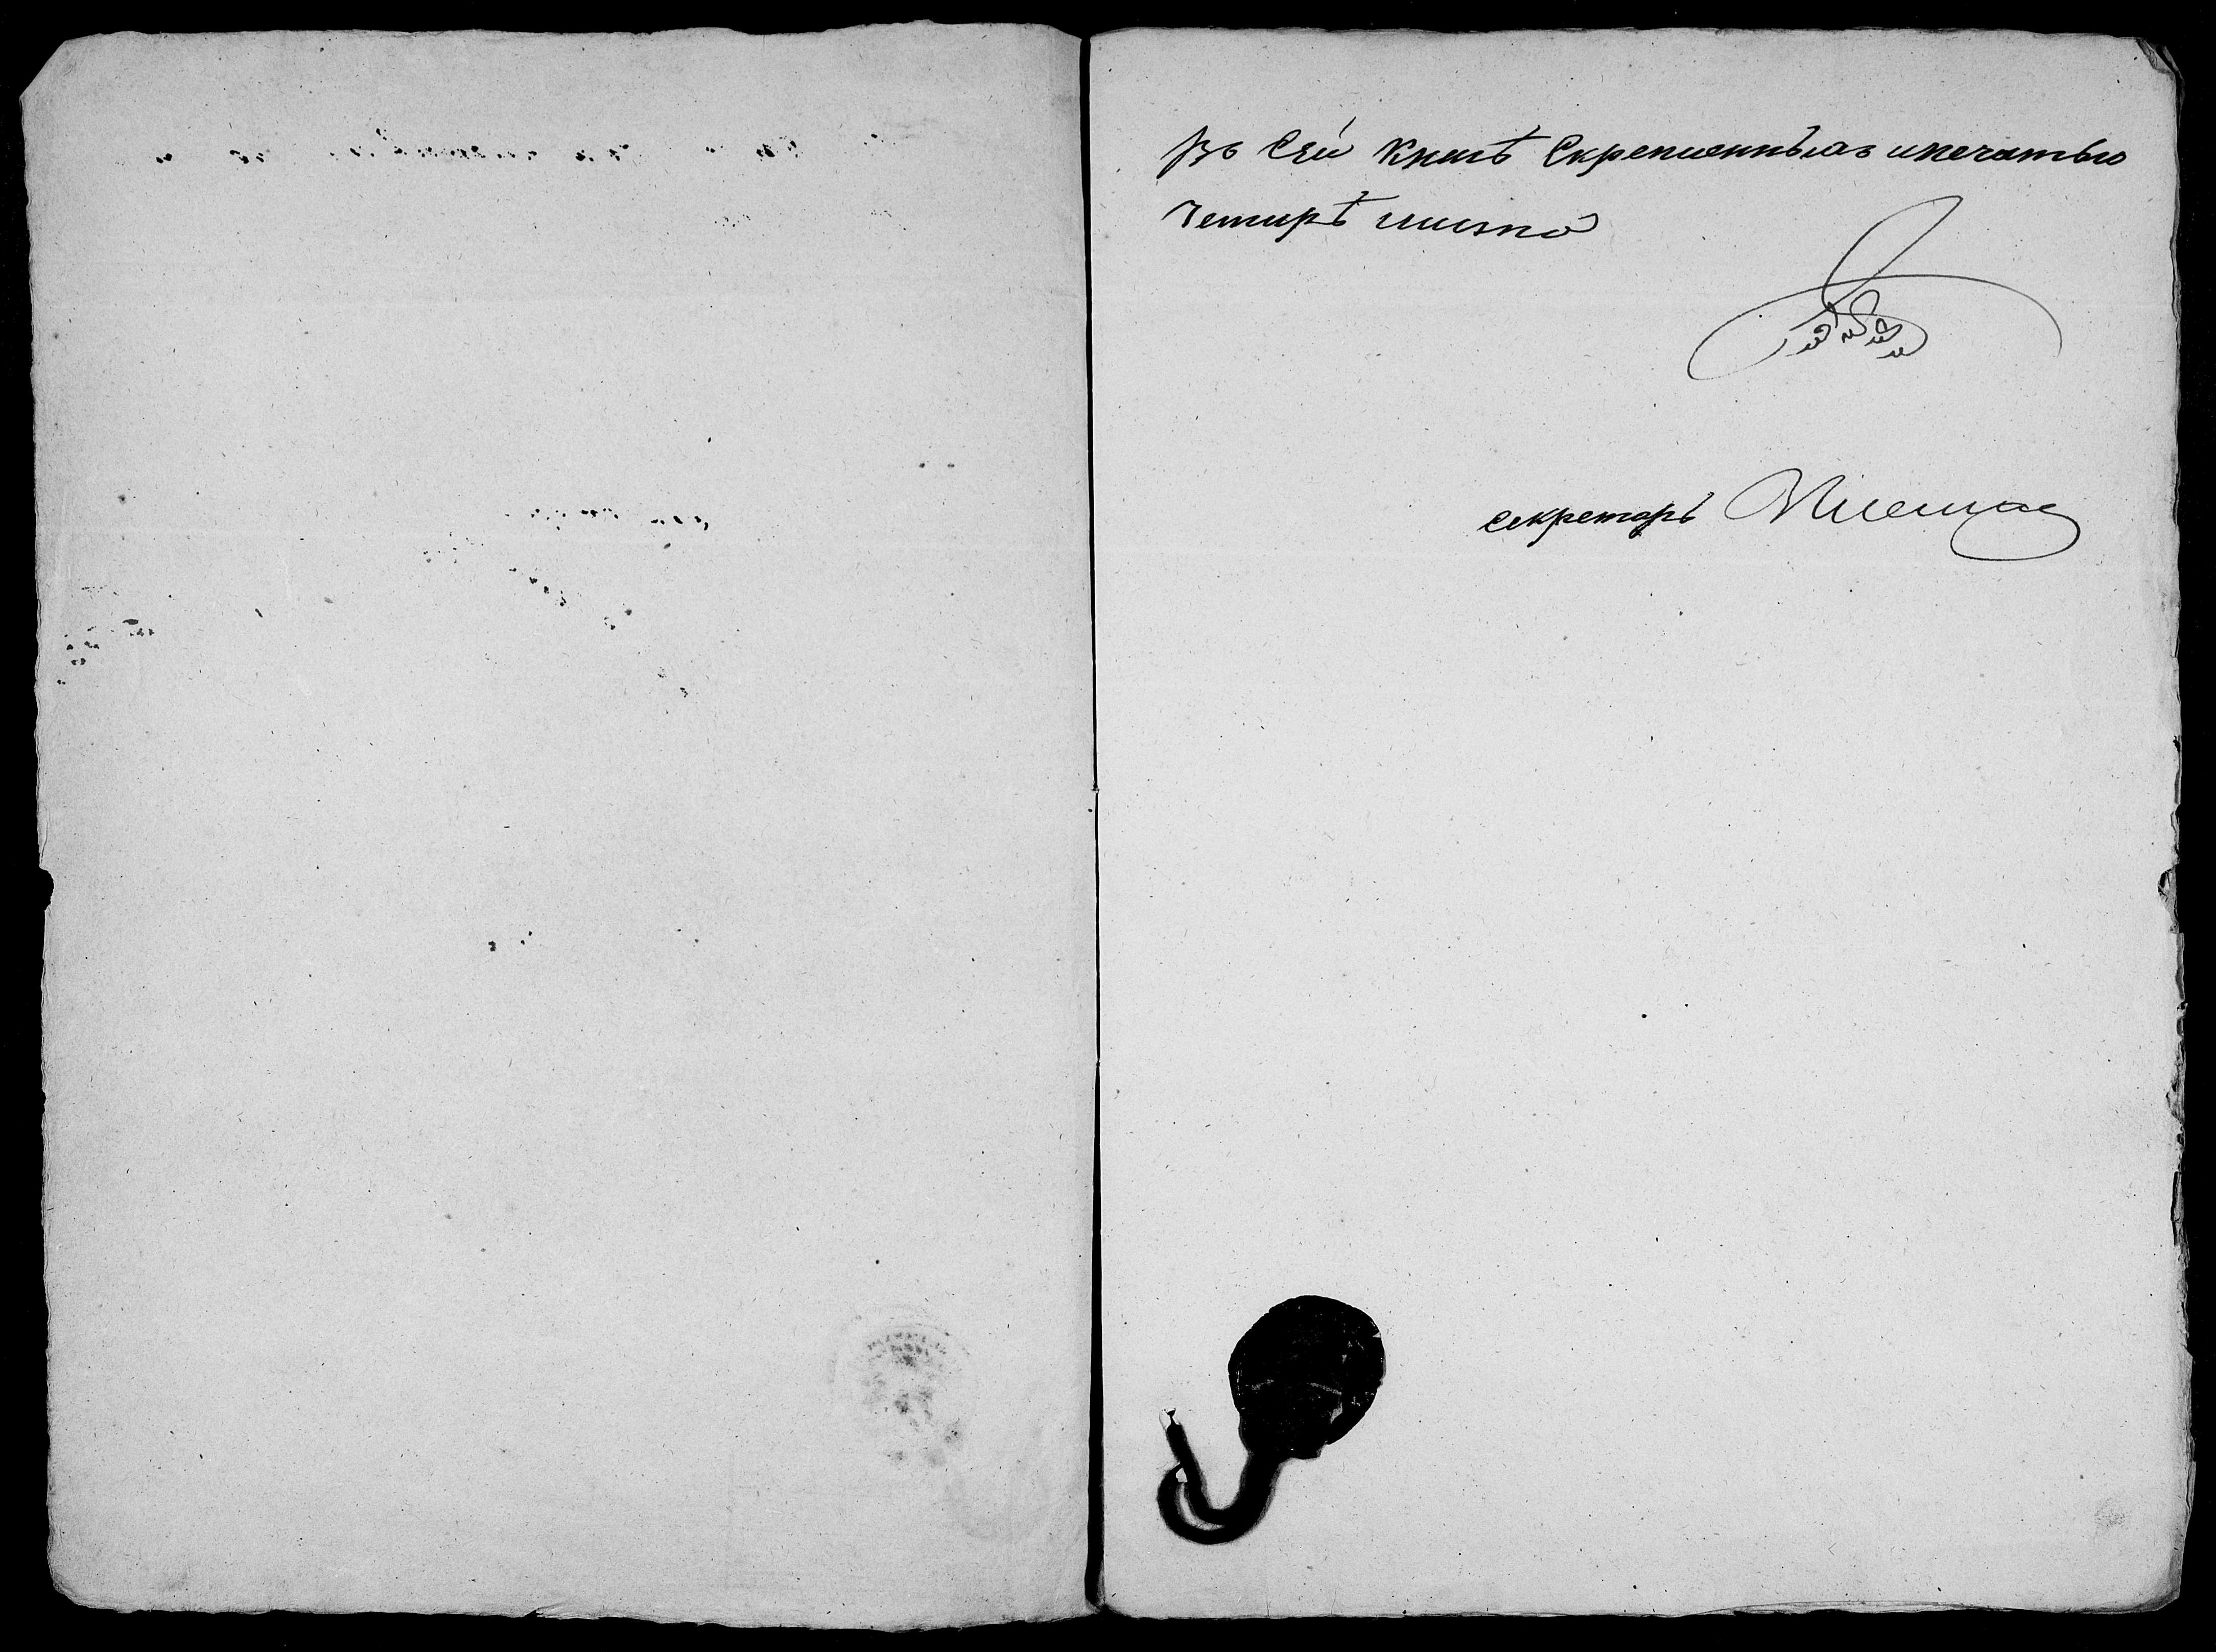 Въ сей книгѣ Скрепленныхъ и печатью
Четирѣ листа
секретарь